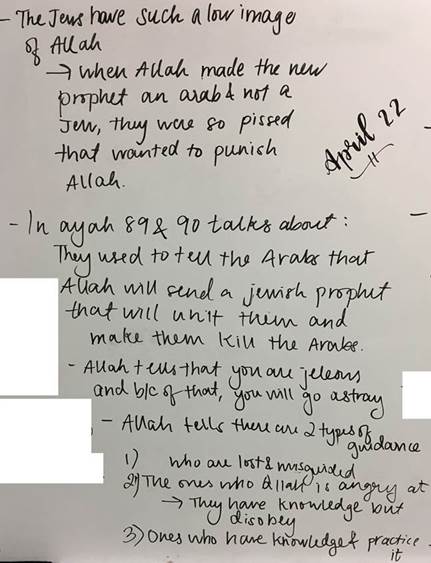 - The Jews have such a low image
of Allah
→ when Allah made the new
prophet an arab & not a
Jew, they were so pissed
that wanted to punish
Allah.
April 22
- In ayah 89 & 90 talks about :
They used to tell the Arabs that
Allah will send a jewish prophet
that will unit them and
make them kill the Arabs.
- Allah tells that you are jeleous
and b/c of that, you will go astray
- Allah tells there are 2 types of
guidance
1) who are lost & misguided
2) The ones who Allah is angry at
→ They have knowledge but
disobey
3) Ones who have knowledge & practice
it